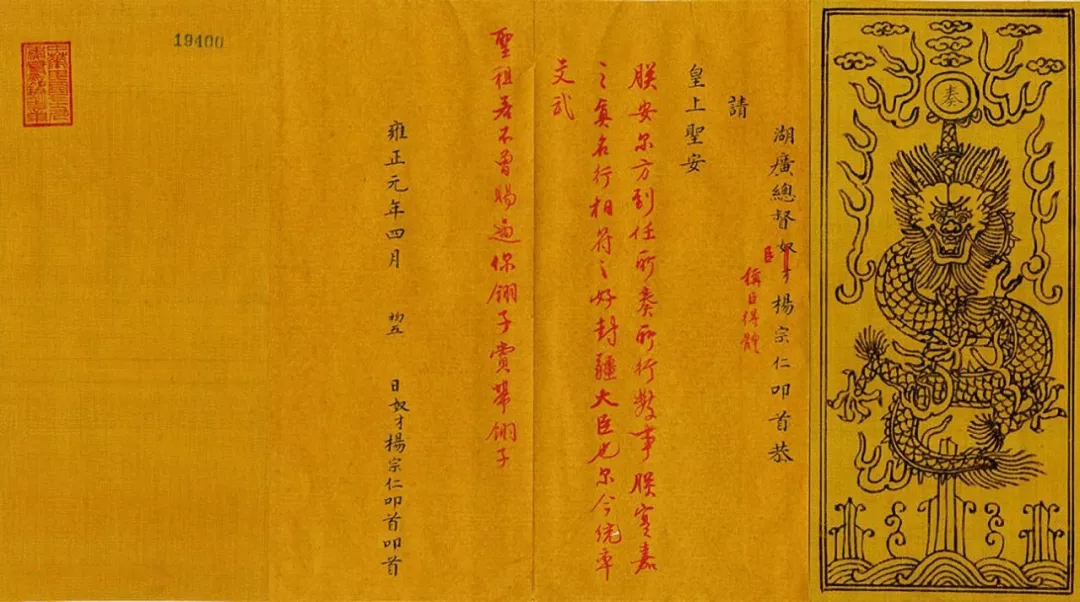 奏
湖廣總督奴才楊宗仁叩首恭
臣
稱臣得體
請
皇上聖安
朕安尔方到任所奏所行數事朕實嘉
之真名行相符之好封疆大臣也尔今統率
文武
聖祖若不曾賜過你翎子賞帶翎子
雍正元年四月 初五 日奴才楊宗仁叩首叩首
19400